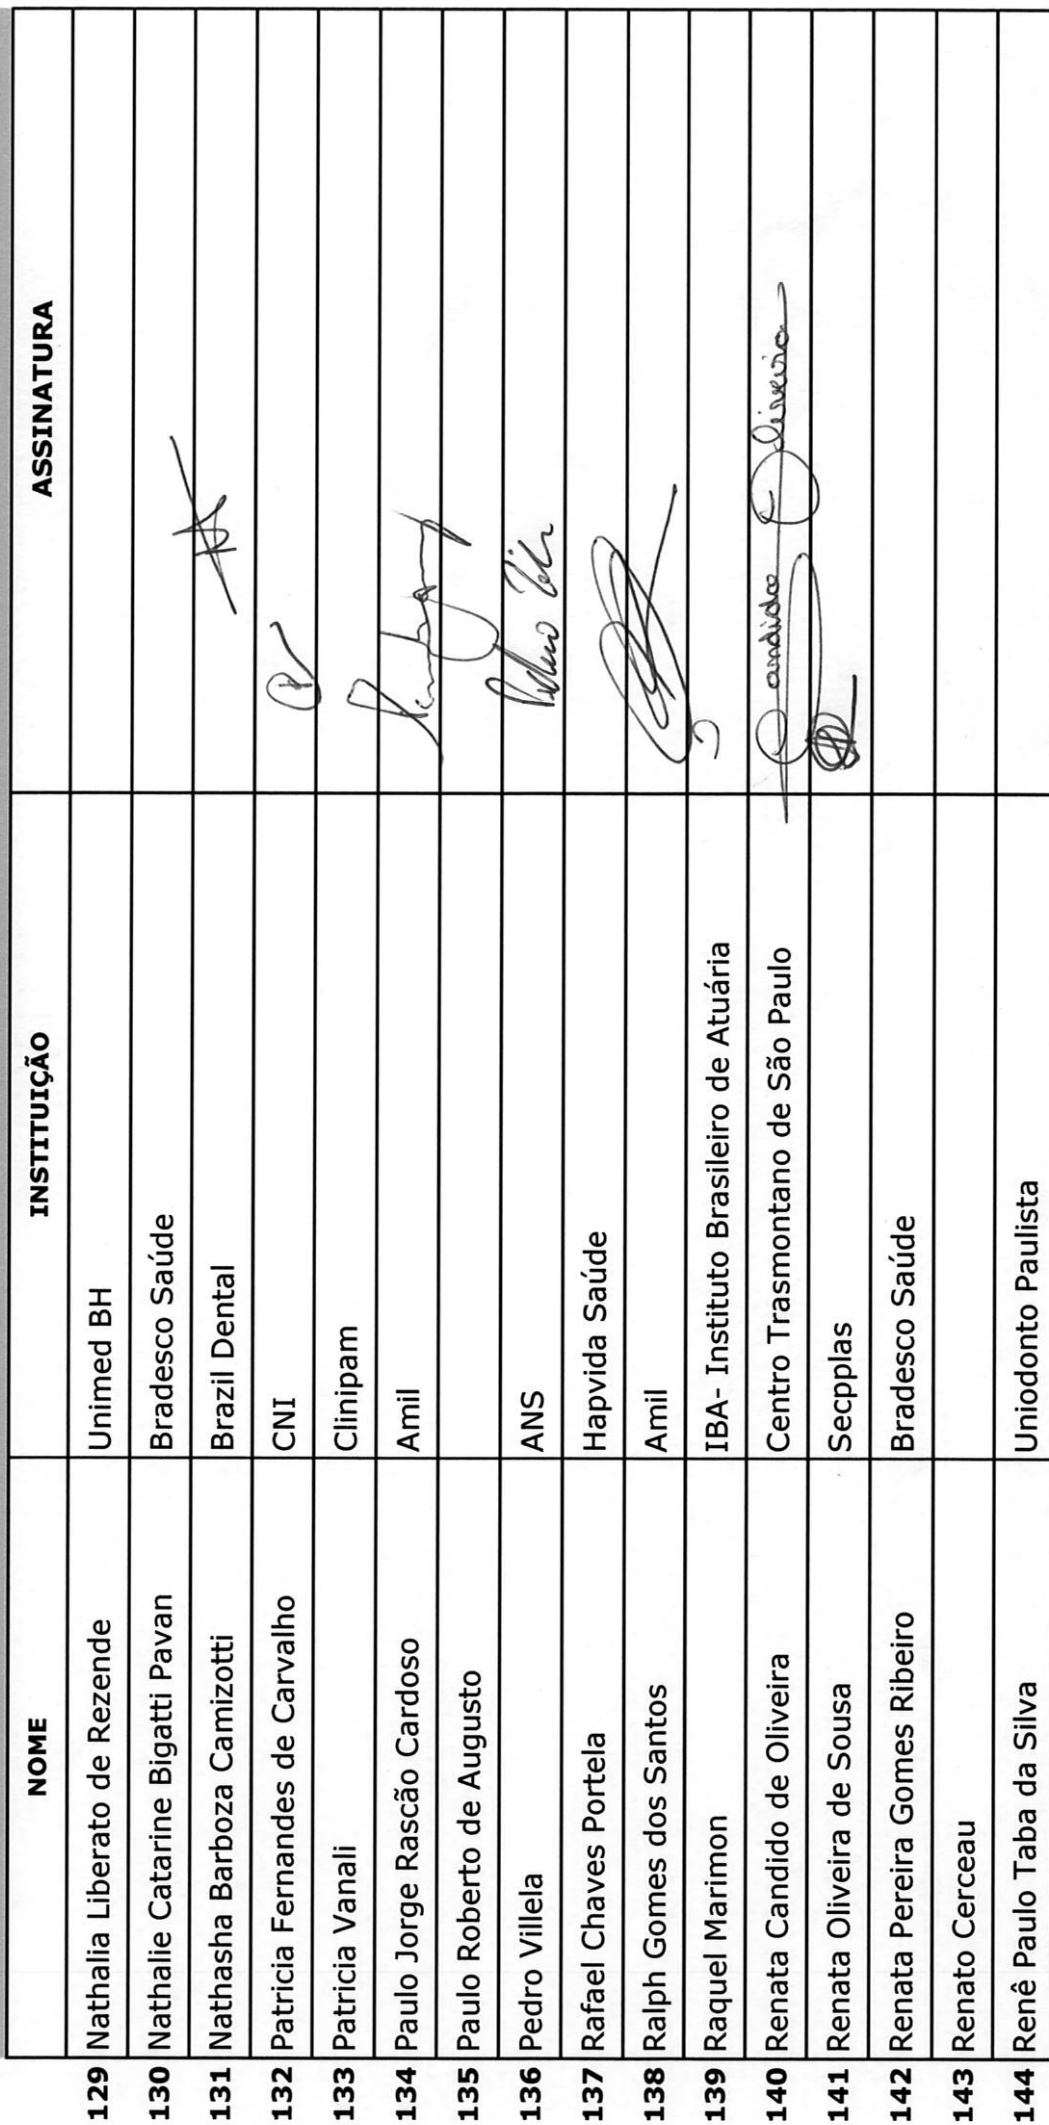 NOME INSTITUIÇÃO ASSINATURA
129 Nathalia Liberato de Rezende Unimed BH
130 Nathalie Catarine Bigatti Pavan Bradesco Saúde
131 Nathasha Barboza Camizotti Brazil Dental
132 Patricia Fernandes de Carvalho CNI
133 Patricia Vanali Clinipam
134 Paulo Jorge Rascão Cardoso Amil
135 Paulo Roberto de Augusto
136 Pedro Villela ANS Pedro
137 Rafael Chaves Portela Hapvida Saúde
138 Ralph Gomes dos Santos Amil
139 Raquel Marimon IBA- Instituto Brasileiro de Atuária
140 Renata Candido de Oliveira Centro Trasmontano de São Paulo Candido Oliveira
141 Renata Oliveira de Sousa Secpplas
142 Renata Pereira Gomes Ribeiro Bradesco Saúde
143 Renato Cerceau
144 Renê Paulo Taba da Silva Uniodonto Paulista